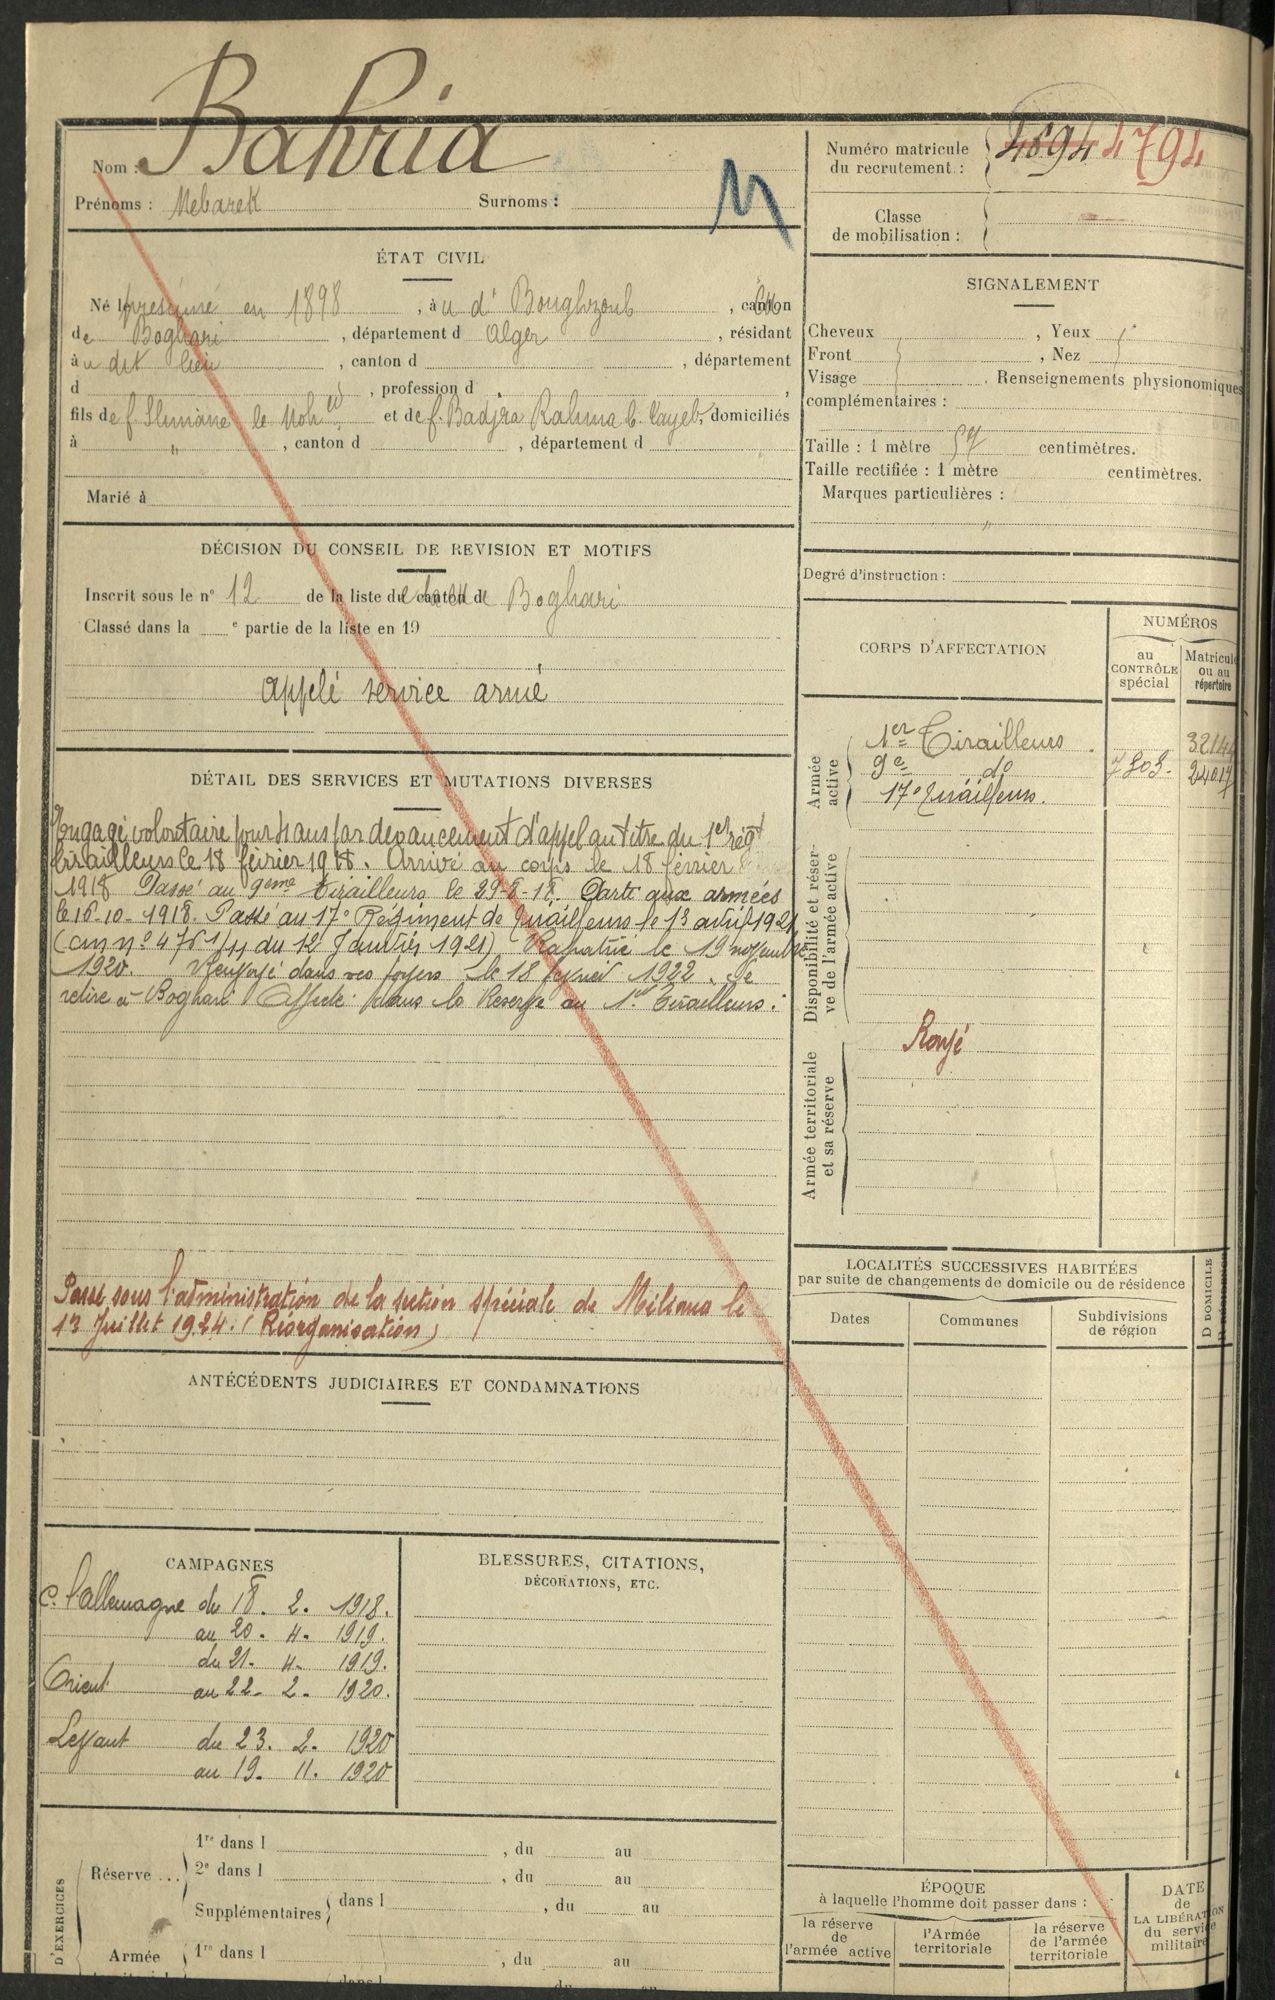 Nom : Bahria
Prénoms : Mebarek Surnoms :
Numéro matricule du recrutement : 4694 4794
Classe de mobilisation :
ÉTAT CIVIL
Né le présumé en 1898, à u d' Boughzoul, canton
de Boghari, département d Alger, résidant
à u dit lieu, canton d , département
d , profession d ,
fils de f. Slimane et de f. Badjra Rahma b. Tayeb, domiciliés
à " , canton d , département d
Marié à
DÉCISION DU CONSEIL DE REVISION ET MOTIFS
Inscrit sous le n° 12 de la liste du canton d Boghari
Classé dans la e partie de la liste en 19
Appelé service armé
DÉTAIL DES SERVICES ET MUTATIONS DIVERSES
Engagé volontaire pour 4 ans par devancement d'appel au titre du 1er régt
tirailleurs le 18 février 1918. Arrivé au corps le 18 février
1918 Passé au 9eme tirailleurs le 29-8-18. Parti aux armées
le 16-10-1918. Passé au 17e Régiment de Tirailleurs le 13 avril 1921
(cm n° 476 1/11 du 12 Janvier 1921) Rapatrié le 19 novembre
1920. Renvoyé dans ses foyers le 18 février 1922. Se
retire à Boghari Affecté dans la Réserve au 1er Tirailleurs.
Passé sous l'administration de la section spéciale de Miliana le
13 Juillet 1924. (Réorganisation)
ANTÉCÉDENTS JUDICIAIRES ET CONDAMNATIONS
CAMPAGNES
C. l'allemagne du 18. 2. 1918.
au 20. 4. 1919.
du 21. 4. 1919.
Orient au 22. 2. 1920.
Levant du 23. 2. 1920
au 19. 11. 1920
BLESSURES, CITATIONS,
DÉCORATIONS, ETC.
D'EXERCICES
Réserve ... 1re dans l , du au
2e dans l , du au
Supplémentaires dans l , du au
Armée 1re dans l , du au
SIGNALEMENT
Cheveux , Yeux
Front , Nez
Visage . Renseignements physionomiques
complémentaires :
Taille : 1 mètre 57 centimètres.
Taille rectifiée : 1 mètre centimètres.
Marques particulières :
"
Degré d'instruction :
CORPS D'AFFECTATION
NUMÉROS
au CONTRÔLE spécial
Matricule ou au répertoire
Armée active
1er Tirailleurs
9e do
17e Tirailleurs.
Disponibilité et réserve de l'armée active
Armée territoriale et sa réserve
Rayé
LOCALITÉS SUCCESSIVES HABITÉES
par suite de changements de domicile ou de résidence
Dates Communes Subdivisions de région
D DOMICILE
ÉPOQUE
à laquelle l'homme doit passer dans :
la réserve de l'armée active
l'Armée territoriale
la réserve de l'armée territoriale
DATE de LA LIBÉRATION du service militaire